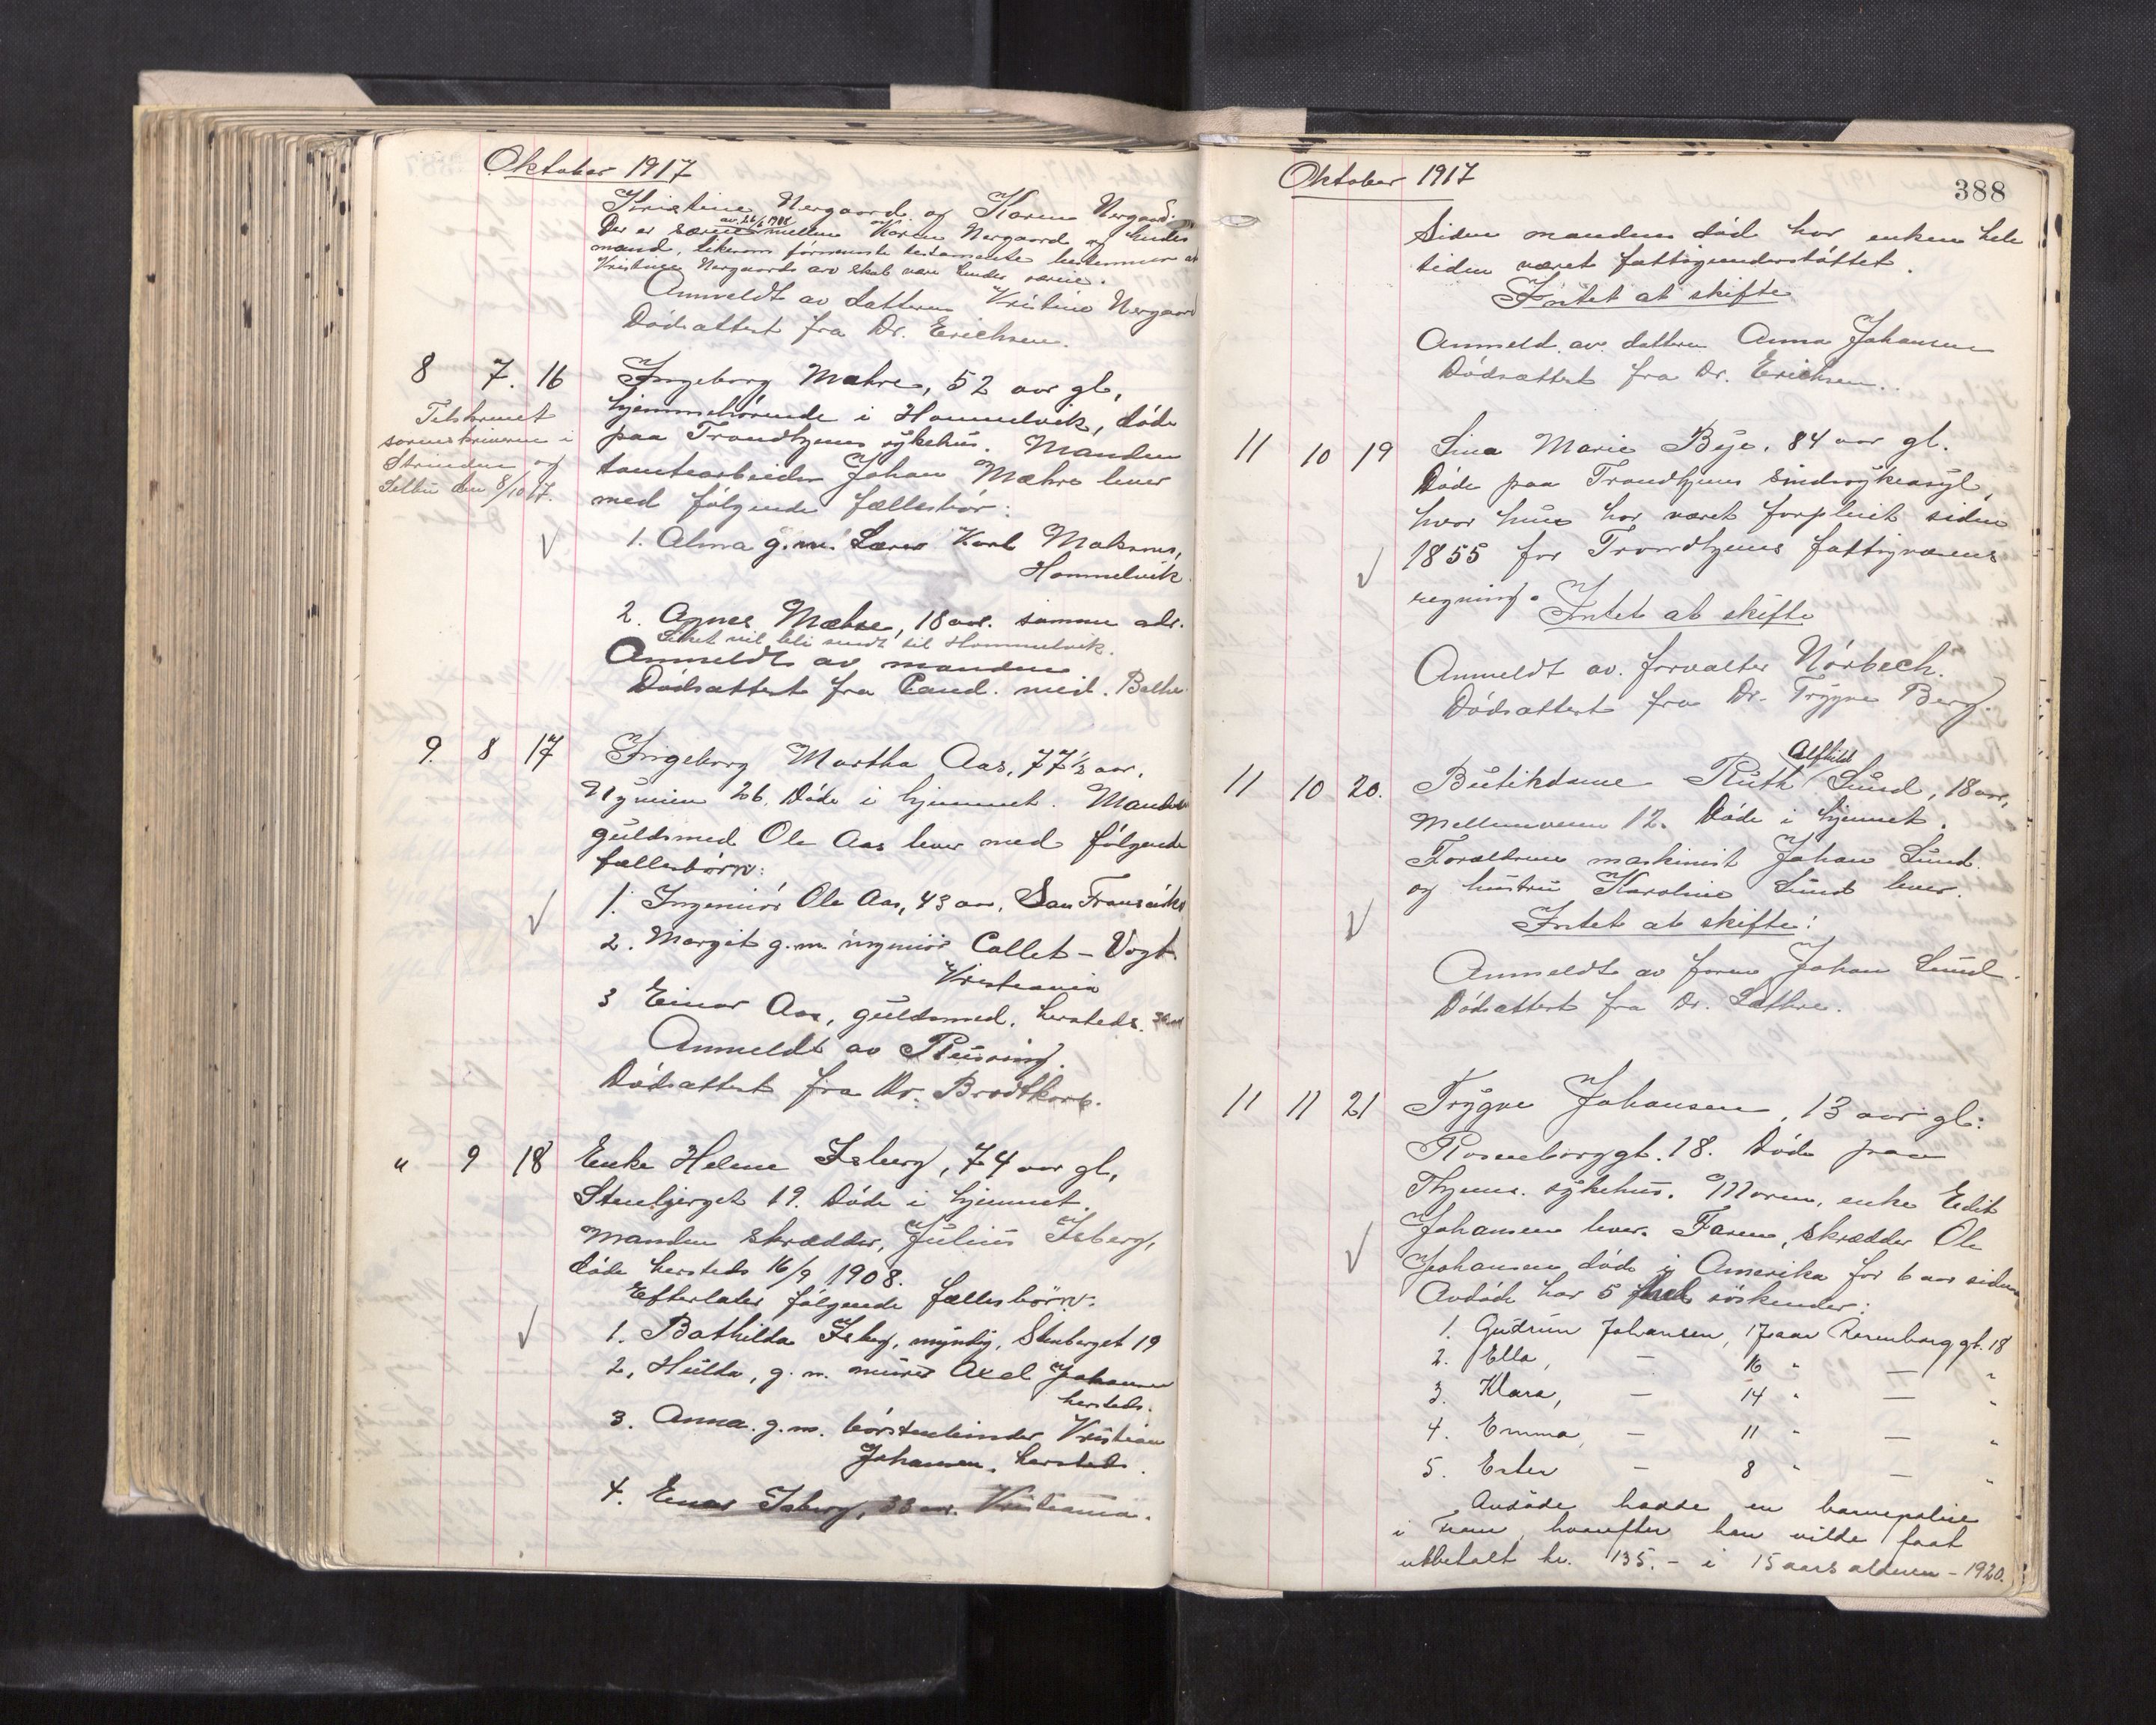 Oktober 1917
Kristine Nergaard og Karen Nergaard.
av 26/6 1915
Der er særeie mellem Karen Nergaard og hendes
mand, likesomførnævnte testamente bestemmer at
Kristine Nergaards arv skal være hendes særeie.
Anmeldt av datteren Kristine Nergaard
Dødsattest fra Dr. Erichsen.
8 7. 16 Ingeborg Mæhre, 52 aar gl,
hjemmehørende i Hommelvik, døde
paa Trondhjems sykehus. Manden
tomtearbeider Johan Mæhre lever
med følgende fællesbør:
Tilstævnet
sorenskriveren i
Strinden og
Selbu den 8/10 17.
1. Alma g.m. Lærer Karl
Hommelvik
2. Agnes Mæhre, 18 aar. samme adr.
Liket vil bli sendt til Hommelvik.
Anmeldt av manden
Dødsattest fra Cand. med.
9. 8 17 Ingeborg Martha Aas, 77½ aar,
Nyveien 26. Døde i hjemmet. Manden
guldsmed Ole Aas lever med følgende
fællesbørn:
1. Ingeniør Ole Aas, 43 aar, San Fransisko
2. Margit g.m. ingeniør Collet-Vogt
Kristiania
3 Einar Aas, guldsmed, hersteds.
Anmeldt av Reusring.
Dødsattest fra Dr. Brodtkorb.
" 9 18 Enke Helene Isberg, 74 aar gl,
Stenbjerget 19. Døde i hjemmet.
Manden skrædder, Julius Isberg,
døde hersteds 16/9 1908.
Efterlater følgende fællesbørn:
1. Bathilda Isberg, myndig, Stenberget 19
2. Hulda, g.m. murer Axel Johansen
hersteds.
3. Anna. g.m. børstenbinder Kristian
Johansen, hersteds.
4. Einar Isberg, 33 aar. Kristiania.
Oktober 1917
388
Siden mandens død har enken hele
tiden været fattigunderstøttet.
Intet at skifte
Anmeld. av. datteren Anna Johansen
Dødsattest fra Dr. Erichsen.
11 10 19 Lina Marie Bye, 84 aar gl.
Døde paa Trondhjems sindssykeasyl,
hvor hun har været forpleiet siden
1855 for Trondhjems fattigvæsens
regning. Intet at skifte
Anmeldt av. forvalter Nørbech.
Dødsattest fra Dr. Trygve Berg.
Alfhild
11 10 20. Butikdame Ruth Lund, 18 aar,
Mellemveien 12. Døde i hjemmet.
Forældrene maskinist Johan Lund
og hustru Karoline Lund lever.
Intet at skifte!
Anmeldt av faren Johan Lund.
Dødsattest fra Dr. Sæthre.
11 11 21 Trygve Johansen, 13 aar gl:
Rosenborggt. 18. Døde paa
Thjems. sykehus. Moren, enke Edit
Johansen lever. Faren, skrædder Ole
Johansen døde i Amerika for 6 aar siden
Avdøde har 5 hel søskender:
1. Gudrun Johansen, 17 aar Rosenborg gt. 18
2. Ella, — 16 " — "
3. Klara, — 14 " — "
4. Emma, — 11 " — "
5. Ester — 8 " — "
Avdøde hadde en barnepolice
i Fram, hvorefter han vilde faat
utbetalt kr. 135.- i 15 aars alderen - 1920.